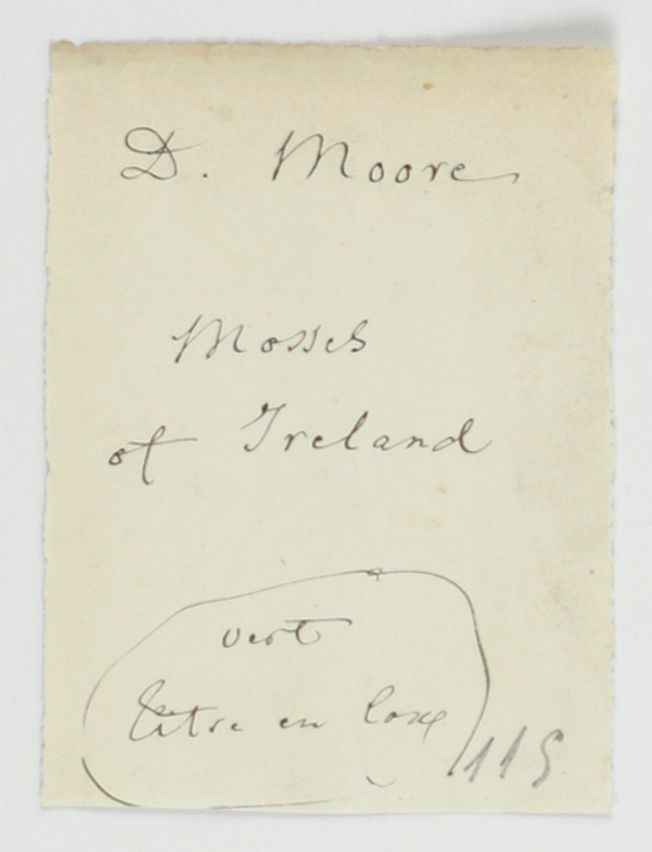 D. Moore
Mosses
of Ireland
vert
titre en long
115